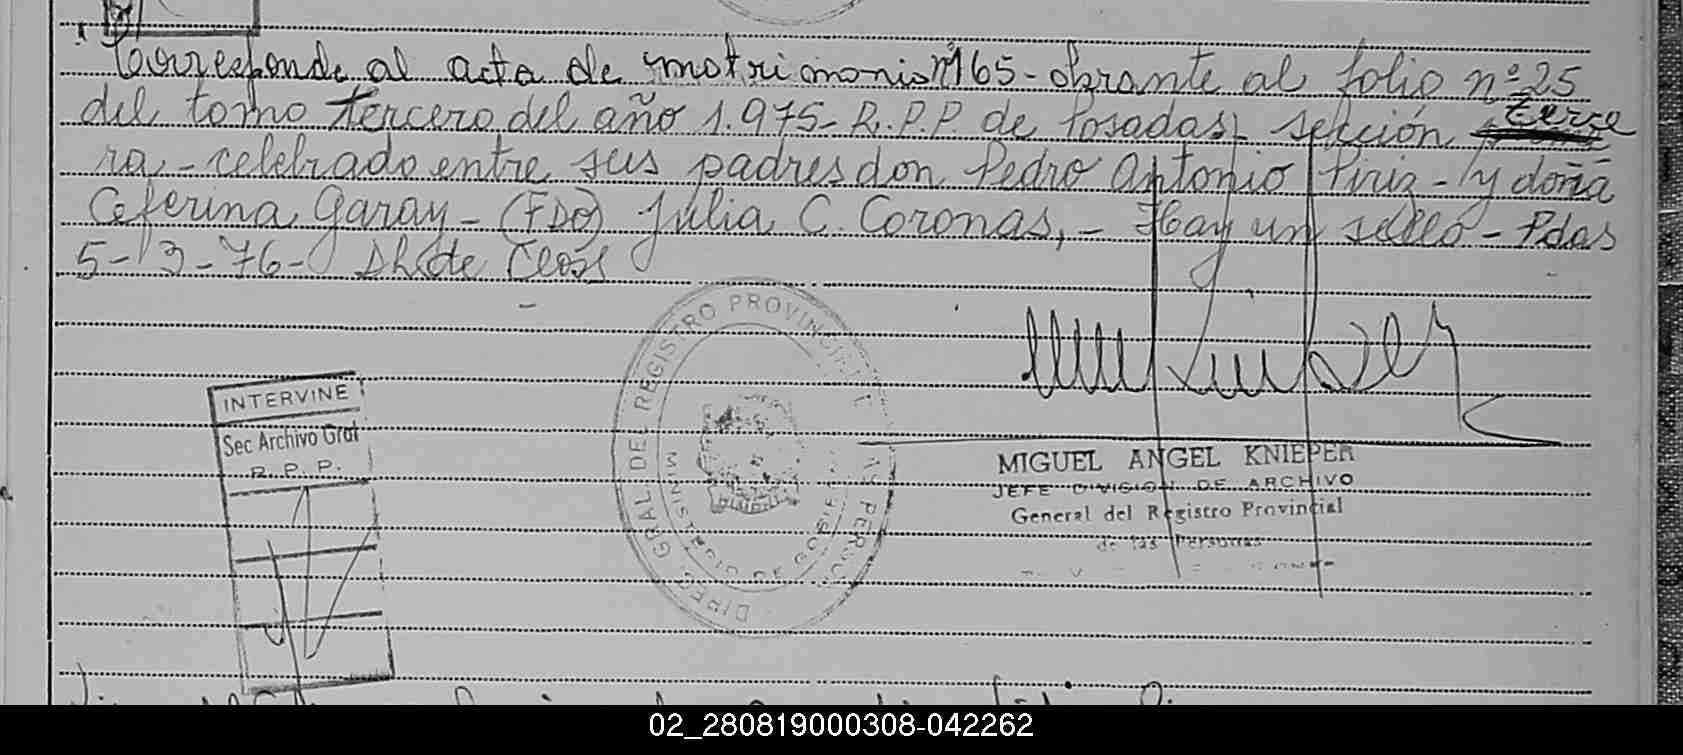 Corresponde al acta de matrimonio nº 165- obrante al folio nº 25
del tomo tercero del año 1.975- R.P.P. de Posadas, sección terce
ra - celebrado entre sus padres don Pedro Antonio Piriz - y doña
Ceferina Garay - (FDO) Julia C. Coronas, - Hay un sello - Pdas
5-3-76-
DIREC. GRAL. DEL REGISTRO PROVINCIAL
INTERVINE
Sec Archivo Gral
R. P. P.
MIGUEL ANGEL KNIEPER
JEFE DIVISION DE ARCHIVO
General del Registro Provincial
de las Personas
02_280819000308-042262